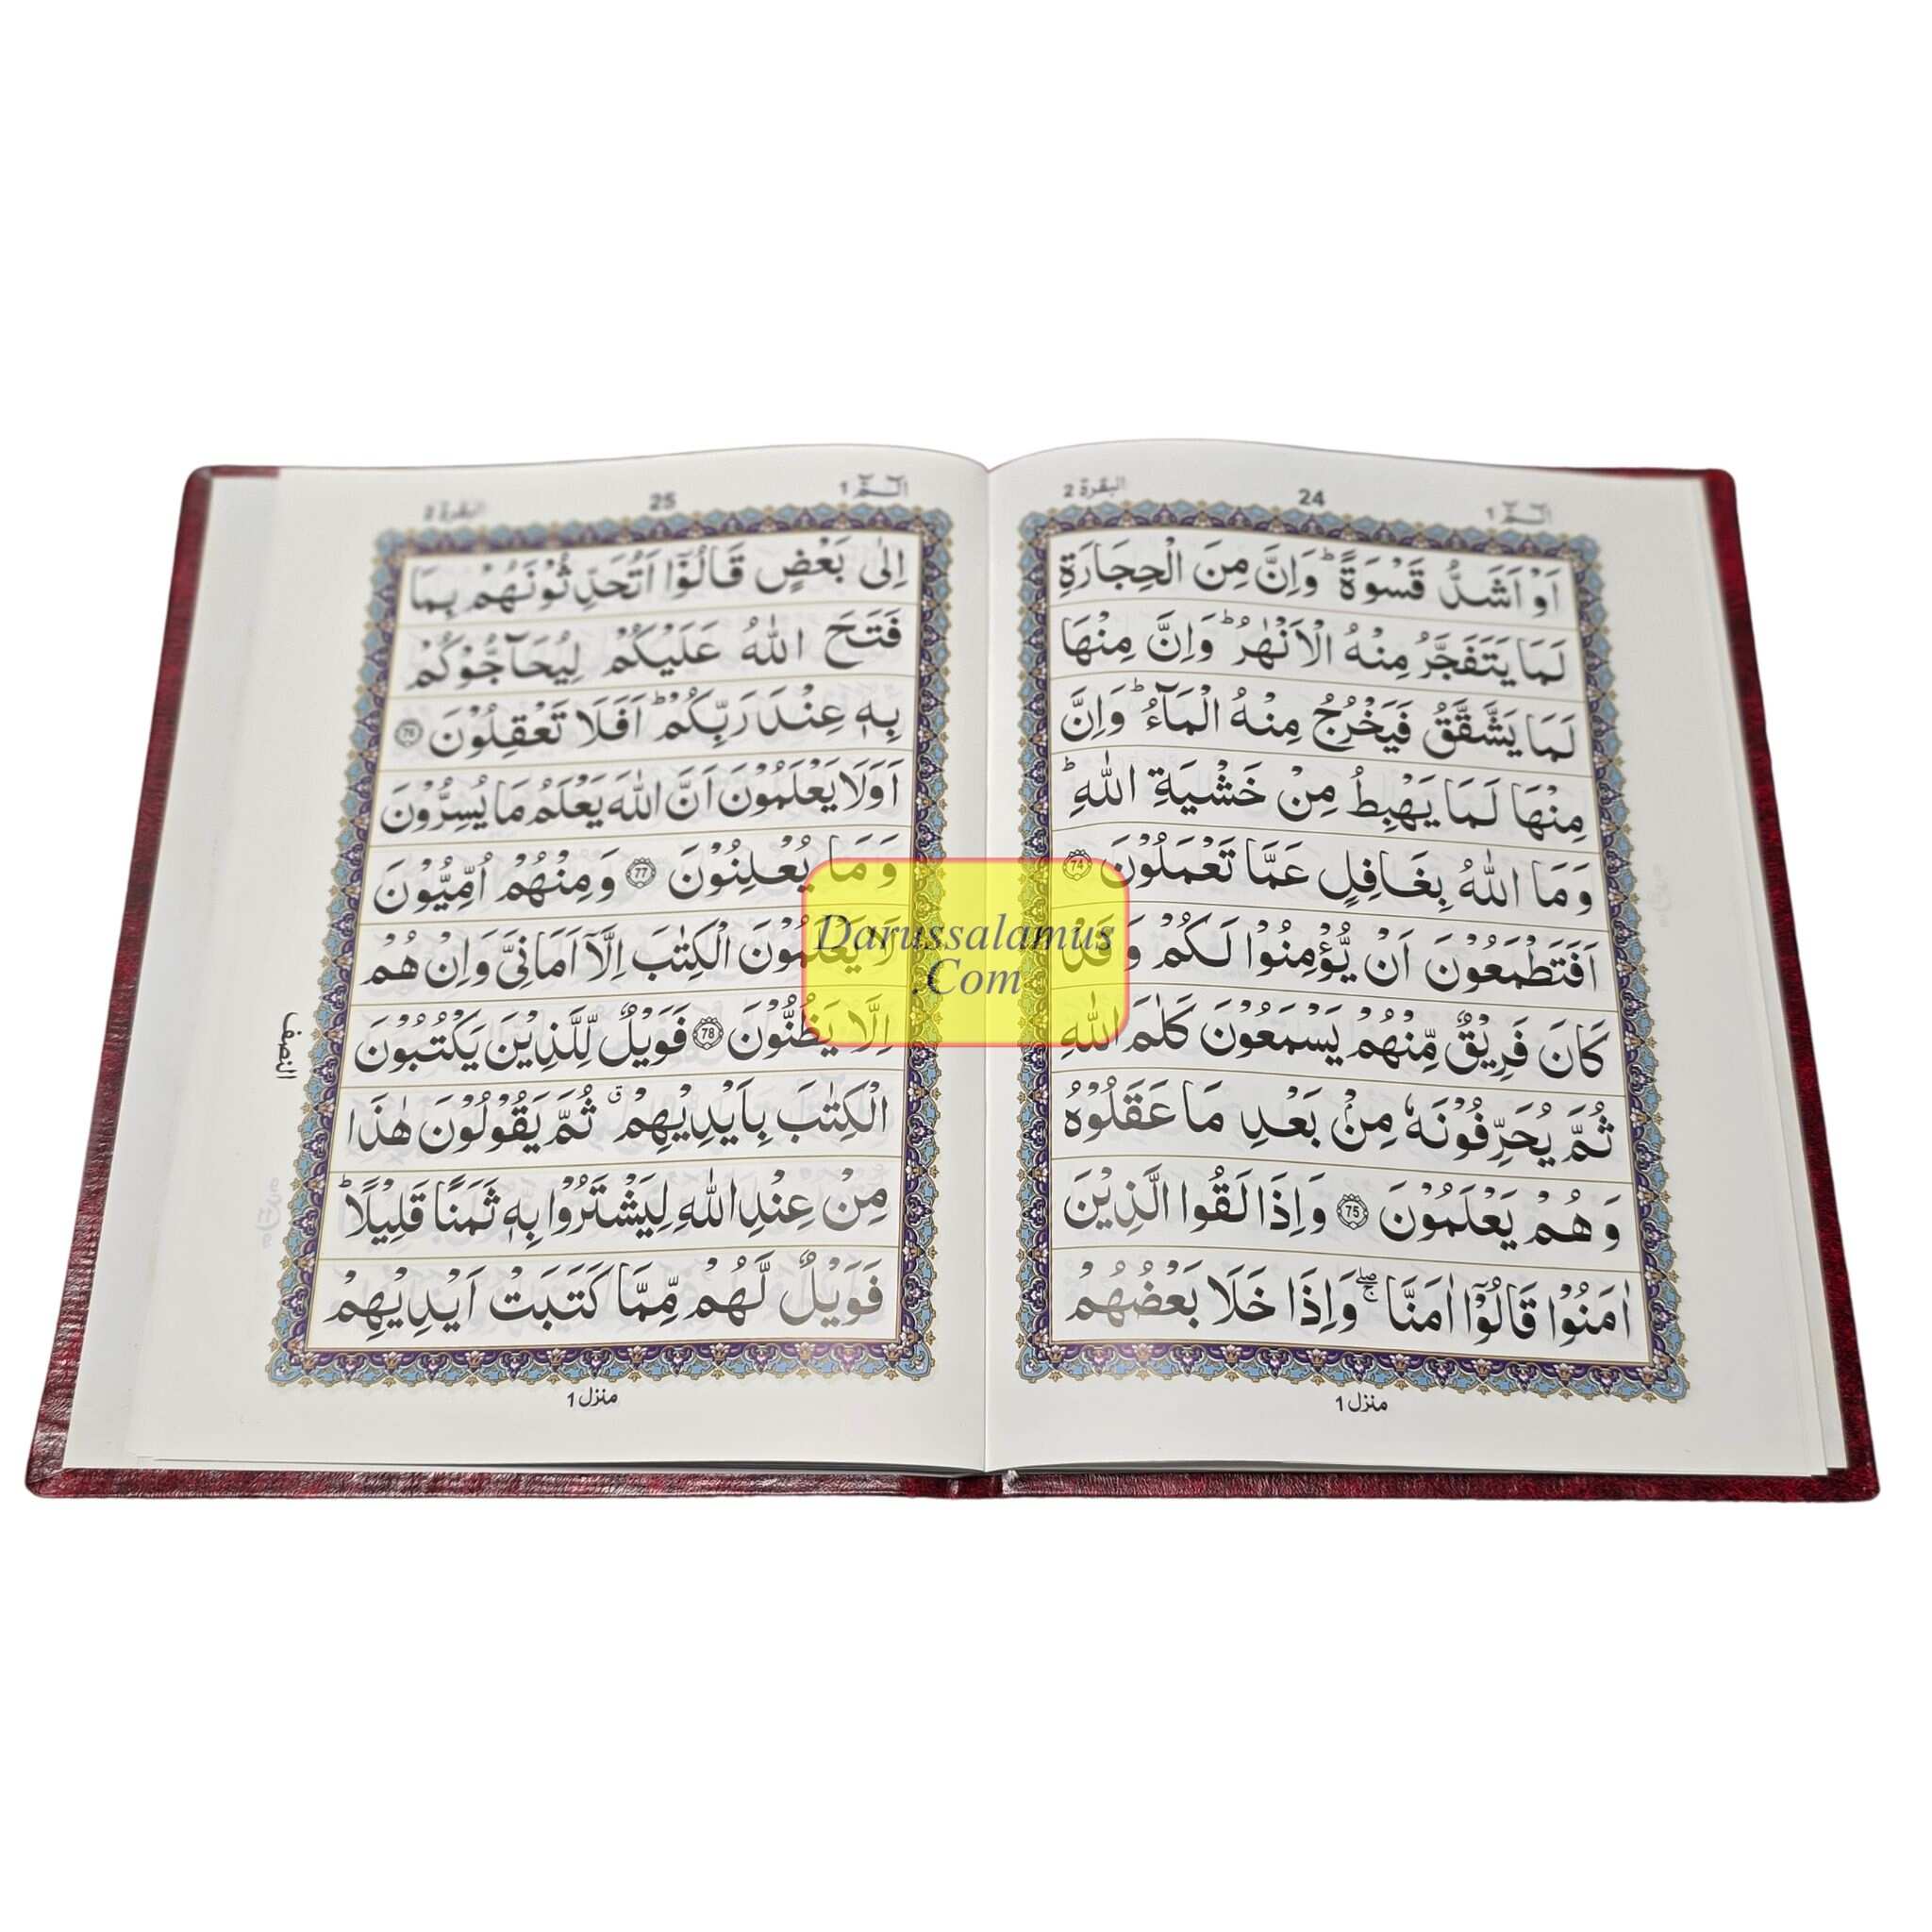 الٓمّٓ 1
24
البقرة 2
اَوْ اَشَدُّ قَسْوَةً ؕ وَاِنَّ مِنَ الْحِجَارَةِ
لَمَا يَتَفَجَّرُ مِنْهُ الْاَنْهٰرُ ؕ وَاِنَّ مِنْهَا
لَمَا يَشَّقَّقُ فَيَخْرُجُ مِنْهُ الْمَآءُ ؕ وَاِنَّ
مِنْهَا لَمَا يَهْبِطُ مِنْ خَشْيَةِ اللّٰهِ ؕ
وَمَا اللّٰهُ بِغَافِلٍ عَمَّا تَعْمَلُوْنَ 74
اَفَتَطْمَعُوْنَ اَنْ يُّؤْمِنُوْا لَكُمْ وَقَدْ
كَانَ فَرِيْقٌ مِّنْهُمْ يَسْمَعُوْنَ كَلٰمَ اللّٰهِ
ثُمَّ يُحَرِّفُوْنَهٗ مِنْۢ بَعْدِ مَا عَقَلُوْهُ
وَهُمْ يَعْلَمُوْنَ 75 وَاِذَا لَقُوا الَّذِيْنَ
اٰمَنُوْا قَالُوْٓا اٰمَنَّا ۖۚ وَاِذَا خَلَا بَعْضُهُمْ
منزل 1
الٓمّٓ 1
25
البقرة 2
اِلٰى بَعْضٍ قَالُوْٓا اَتُحَدِّثُوْنَهُمْ بِمَا
فَتَحَ اللّٰهُ عَلَيْكُمْ لِيُحَآجُّوْكُمْ
بِهٖ عِنْدَ رَبِّكُمْ ؕ اَفَلَا تَعْقِلُوْنَ 76
اَوَلَا يَعْلَمُوْنَ اَنَّ اللّٰهَ يَعْلَمُ مَا يُسِرُّوْنَ
وَمَا يُعْلِنُوْنَ 77 وَمِنْهُمْ اُمِّيُّوْنَ
لَا يَعْلَمُوْنَ الْكِتٰبَ اِلَّآ اَمَانِيَّ وَاِنْ هُمْ
اِلَّا يَظُنُّوْنَ 78 فَوَيْلٌ لِّلَّذِيْنَ يَكْتُبُوْنَ
الْكِتٰبَ بِاَيْدِيْهِمْ ۗ ثُمَّ يَقُوْلُوْنَ هٰذَا
مِنْ عِنْدِ اللّٰهِ لِيَشْتَرُوْا بِهٖ ثَمَنًا قَلِيْلًا ؕ
فَوَيْلٌ لَّهُمْ مِّمَّا كَتَبَتْ اَيْدِيْهِمْ
منزل 1
النصف
Darussalamus
.Com